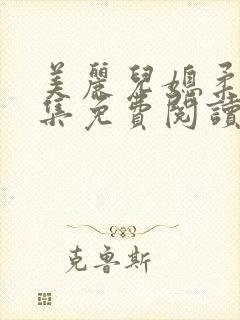 美麗兒媳柔
集免費閱讀
克魯斯